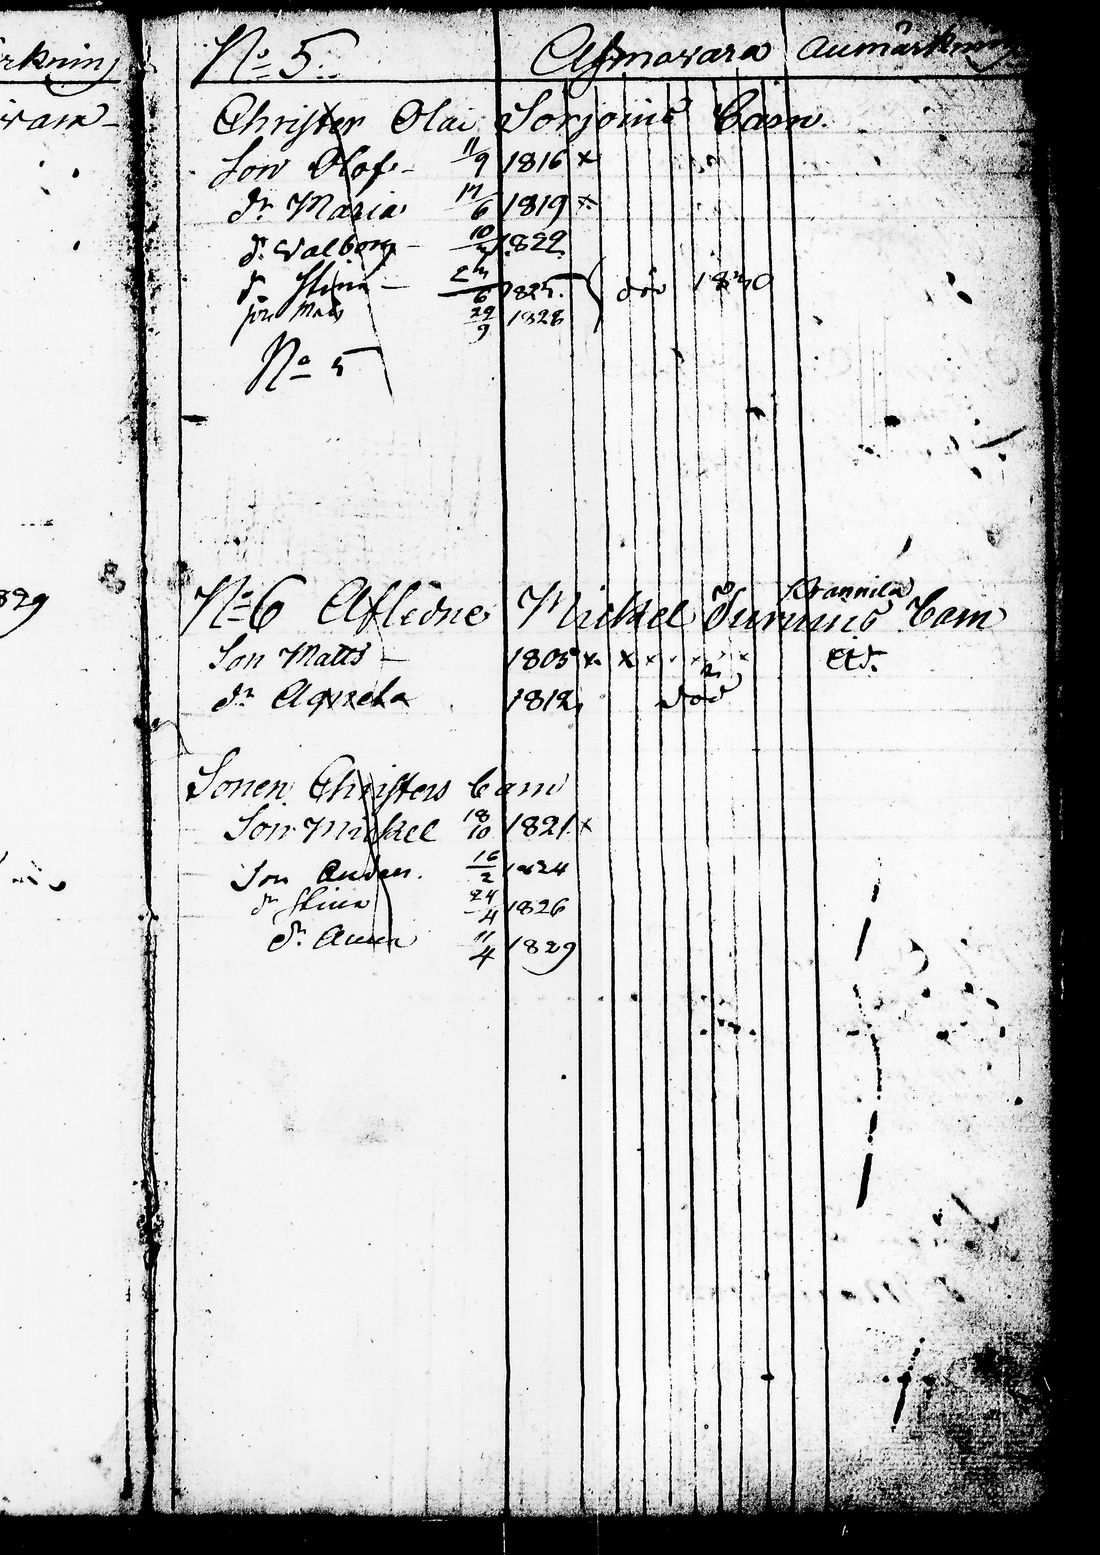 rkning
N:o 5. Afmovara anmärkning
Christer Olai Sorjoins barn.
Son Olof - 11/9 1816 x
dr Maria 17/6 1819 x
dr Walborg - 10/ 1822
dr Stina - 6 1825. död 1830
son Mats 29/9 1828
N:o 5
829
N:o 6 Aflidne Mickel barn
Son Matts - 1805 x x x
dr Agneta 1812 död
Sonen Christers barn
Son Mickel 18/10 1821 x
Son Anders. 16/2 1824
dr Stina 24/4 1826
dr. Anna 11/4 1829